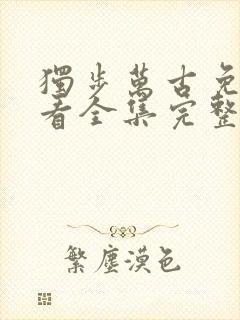 獨步萬古免
看全集完整
繁塵漠色